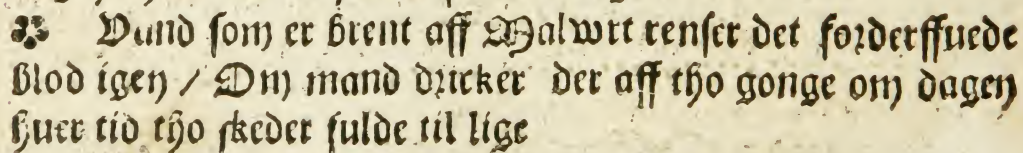 Vand som er brent aff Malwrt renser det forderffuede
blod igen / Om mand dricker der aff tho gonge om dagen
huer tid tho skeder fulde til lige